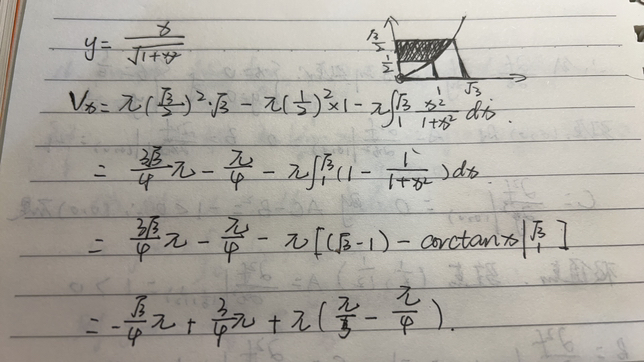 y = x/√(1+x²)
√3/2
1/2
1 √3
Vx = π(√3/2)²·√3 − π(1/2)²×1 − π∫₁^√3 x²/(1+x²) dx.
= 3√3/4 π − π/4 − π∫₁^√3 (1 − 1/(1+x²)) dx
= 3√3/4 π − π/4 − π[(√3−1) − arctanx|₁^√3]
= −√3/4 π + 3/4 π + π(π/3 − π/4).